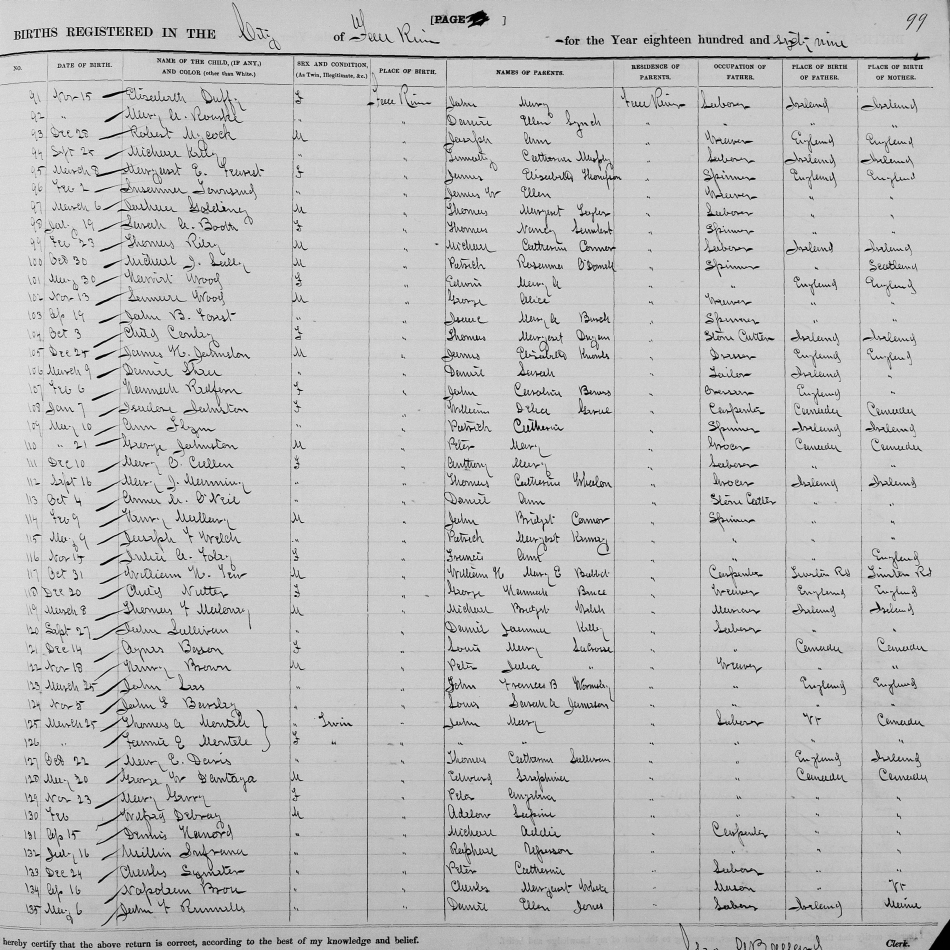 [PAGE ] 99
BIRTHS REGISTERED IN THE City of Fall River —for the Year eighteen hundred and sixty nine
NO. DATE OF BIRTH. NAME OF THE CHILD, (IF ANY,) AND COLOR (other than White.) SEX AND CONDITION, (As Twin, Illegitimate, &c.) PLACE OF BIRTH. NAMES OF PARENTS. RESIDENCE OF PARENTS. OCCUPATION OF FATHER. PLACE OF BIRTH OF FATHER. PLACE OF BIRTH OF MOTHER.
91 Nov 15 Elizabeth Duffy F Fall River John Mary Fall River Laborer Ireland Ireland
92 " Mary A. " " Daniel Ellen Lynch " " " "
93 Dec 28 Robert M " Joseph Ann " Weaver England England
94 Sept 25 Michael Kelly " " Timothy Catherine Murphy " Laborer Ireland Ireland
95 March 8 Margaret E. F " James Elizabeth Thompson " Spinner England England
96 Feb 2 Susanna Townsend " " James W Ellen " Weaver " "
97 March 6 Golding M " Thomas Margaret Taylor " Laborer " "
98 July 19 Sarah A. Booth F " Thomas Nancy " Spinner " "
99 Feb 23 Thomas Riley M " Michael Catherine Connor " Laborer Ireland Ireland
100 Oct 30 Michael J. M " Patrick Rosanna O'Donnell " Spinner " Scotland
101 May 30 Harriet Wood F " Edwin Mary A " " England England
102 Nov 13 Wood M " George Alice " Weaver " "
103 Ap 19 John B. " " Isaac Mary A " Spinner " "
104 Oct 3 Child Conley F " Thomas Margaret Dugan " Stone Cutter Ireland Ireland
105 Dec 25 James H. Johnston M " James Elizabeth " Dresser England England
106 March 9 Daniel Shea " " Daniel Sarah " Tailor Ireland
107 Feb 6 Hannah Redfern F " John Caroline " England "
108 Jan 7 Isadore Johnston F " William Delia " Carpenter Canada Canada
109 May 10 Ann Flynn " " Patrick Catherine " Spinner Ireland Ireland
110 " 21 George Johnston M " Peter Mary " Grocer Canada Canada
111 Dec 10 Mary C. Cullen F " Anthony Mary " Laborer " "
112 Sept 16 Mary J. Manning " " Thomas Catherine Whalon " Grocer Ireland Ireland
113 Oct 4 Anna M. O'Neil " " Daniel Ann " Stone Cutter " "
114 Feb 9 Henry Mallery M " John Bridget Connor " Spinner " "
115 May 9 Joseph F Welch " " Patrick Margaret " " " "
116 Nov 15 Julia A. Foley F " Francis Ann " " " England
117 Oct 31 William H. M " William H Mary E " Carpenter
118 Dec 20 Nutter F " George Hannah Bruce " Weaver England England
119 March 8 Thomas F Maloney M " Michael Bridget Welch " Mason Ireland Ireland
120 Sept 27 John Sullivan " " Daniel Joanna Kelley " Laborer " "
121 Dec 14 Agnes F " Louis Mary " " Canada Canada
122 Nov 18 Henry Brown M " Peter Julia " " Weaver " "
123 March 25 John " " John Frances B " " England England
124 Nov 5 John " " Louis Sarah A " " " "
125 March 25 Thomas A Montile } " Twin " John Mary " Laborer Vt Canada
126 " Fannie E Montile } F " " " " " " " "
127 Oct 22 Mary E. Davis " " Thomas Catharine Sullivan " " England Ireland
128 May 20 George W M " Edward Josephine " " Canada Canada
129 Nov 23 Mary F " Peter " " " "
130 Feb M " " " " "
131 Ap 15 Dennis " " Michael Addie " Carpenter " "
132 July 16 " " " " " "
133 Dec 24 Charles " " Peter Catherine " Laborer " "
134 Ap 16 Napoleon " " Charles Margaret White " Mason " Vt
135 May 6 John F Runnells " " Daniel Ellen Jones " Laborer Ireland Maine
hereby certify that the above return is correct, according to the best of my knowledge and belief. Clerk.